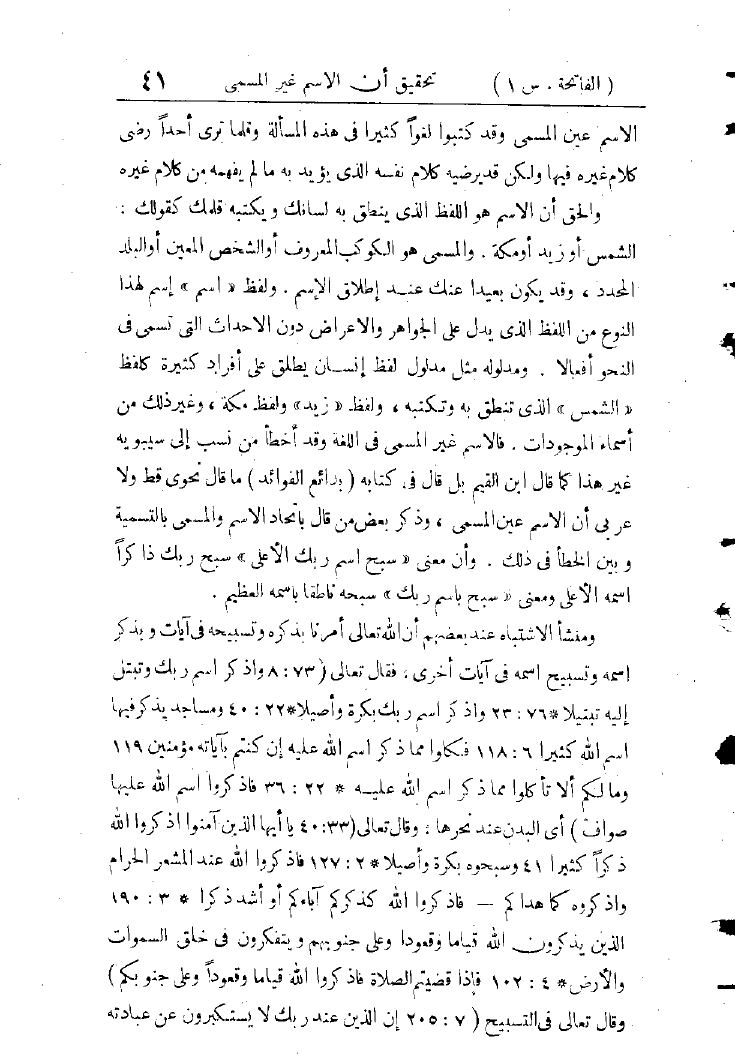 ( الفاتحة . س ١ ) تحقيق أن الاسم غير المسمى ٤١
الاسم عين المسمى وقد كتبوا لغواً كثيرا فى هذه المسألة وقلما ترى أحداً رضى
كلام غيره فيها ولكن قد يرضيه كلام نفسه الذى يؤيد به ما لم يفهمه من كلام غيره
والحق أن الاسم هو اللفظ الذى ينطق به لسانك ويكتبه قلمك كقولك :
الشمس أو زيد أو مكة . والمسمى هو الكوكب المعروف أو الشخص المعين أو البلد
المحدد ، وقد يكون بعيدا عنك عند إطلاق الإسم . ولفظ « اسم » إسم لهذا
النوع من اللفظ الذى يدل على الجواهر والاعراض دون الاحداث التى تسمى فى
النحو أفعالا . ومدلوله مثل مدلول لفظ إنسان يطلق على أفراد كثيرة كلفظ
« الشمس » الذى تنطق به وتكتبه ، ولفظ « زيد » ولفظ مكة ، وغير ذلك من
أسماء الموجودات . فالاسم غير المسمى فى اللغة وقد أخطأ من نسب إلى سيبويه
غير هذا كما قال ابن القيم بل قال فى كتابه ( بدائع الفوائد ) ما قال نحوى قط ولا
عربى أن الاسم عين المسمى ، وذكر بعض من قال باتحاد الاسم والمسمى بالتسمية
وبين الخطأ فى ذلك . وأن معنى « سبح اسم ربك الأعلى » سبح ربك ذاكراً
اسمه الأعلى ومعنى « سبح باسم ربك » سبحه ناطقا باسمه العظيم .
ومنشأ الاشتباه عند بعضهم أن الله تعالى أمرنا بذكره وتسبيحه فى آيات وبذكر
اسمه وتسبيح اسمه فى آيات أخرى ، فقال تعالى ( ٧٣ : ٨ واذكر اسم ربك وتبتل
إليه تبتيلا * ٧٦ : ٢٣ واذكر اسم ربك بكرة وأصيلا * ٢٢ : ٤٠ ومساجد يذكر فيها
اسم الله كثيرا ٦ : ١١٨ فكلوا مما ذكر اسم الله عليه إن كنتم بآياته مؤمنين ١١٩
وما لكم ألا تأكلوا مما ذكر اسم الله عليه * ٢٢ : ٣٦ فاذكروا اسم الله عليها
صواف ) أى البدن عند نحرها ، وقال تعالى ( ٣٣ : ٤٠ يا أيها الذين آمنوا اذكروا الله
ذكراً كثيرا ٤١ وسبحوه بكرة وأصيلا * ٢ : ١٢٧ فاذكروا الله عند المشعر الحرام
واذكروه كما هداكم — فاذكروا الله كذكركم آباءكم أو أشد ذكرا * ٣ : ١٩٠
الذين يذكرون الله قياما وقعودا وعلى جنوبهم ويتفكرون فى خلق السموات
والأرض * ٤ : ١٠٢ فإذا قضيتم الصلاة فاذكروا الله قياما وقعوداً وعلى جنوبكم )
وقال تعالى فى التسبيح ( ٧ : ٢٠٥ إن الذين عند ربك لا يستكبرون عن عبادته